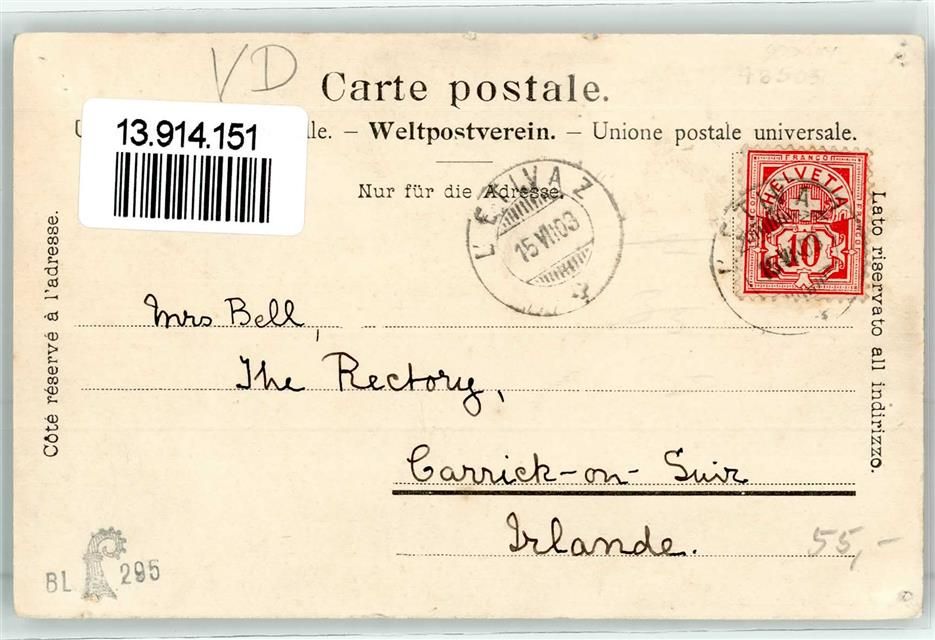 VD
Carte postale.
13.914.151
lle. – Weltpostverein. – Unione postale universale.
Nur für die Adresse.
L'ETIVAZ
15 VII 03
FRANCO
HELVETIA
10
FRANCO
Côté réservé à l'adresse.
Lato riservato all indirizzo.
Mrs Bell,
The Rectory,
Carrick-on-Suir
Irlande.
55,-
BL 295